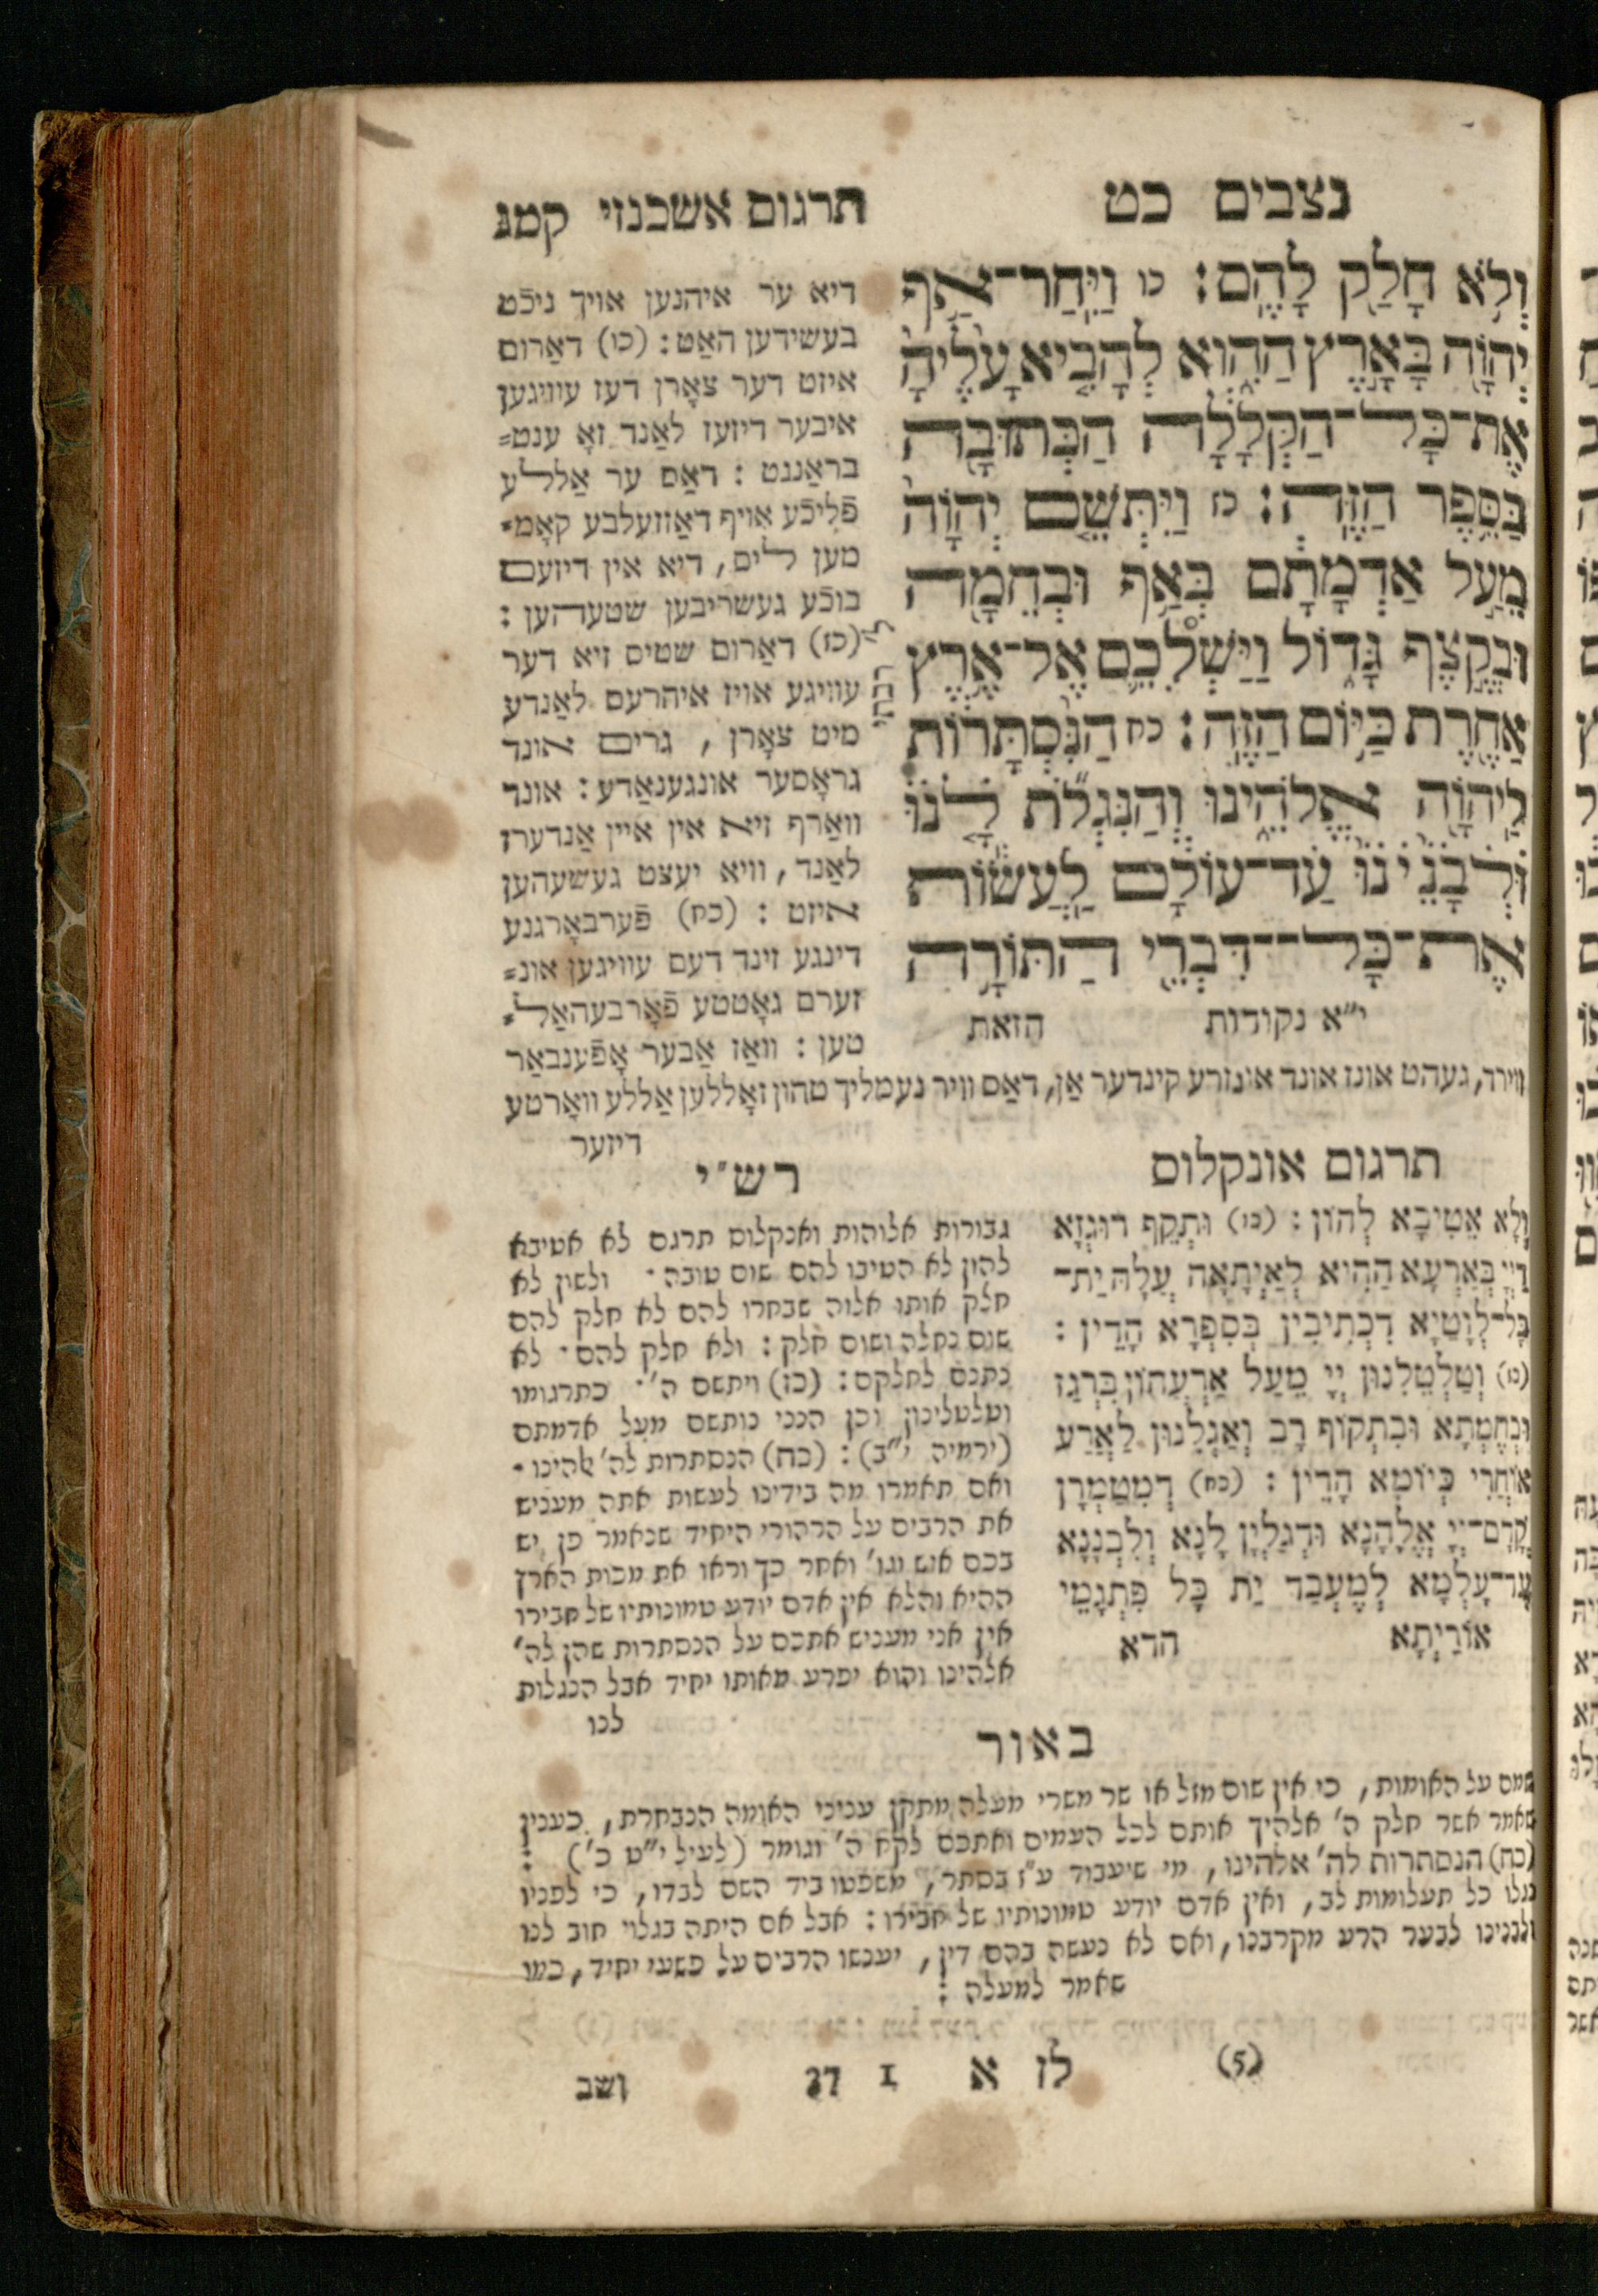 נצבים כט
תרגום אשכנזי קמג
וְלֹ֥א חָלַ֖ק לָהֶֽם׃ כו וַיִּֽחַר־אַ֥ף
יְהוָ֖ה בָּאָ֣רֶץ הַהִ֑וא לְהָבִ֤יא עָלֶ֨יהָ֙
אֶת־כָּל־הַקְּלָלָ֔ה הַכְּתוּבָ֖ה
בַּסֵּ֥פֶר הַזֶּֽה׃ כז וַיִּתְּשֵׁ֤ם יְהוָה֙
מֵעַ֣ל אַדְמָתָ֔ם בְּאַ֥ף וּבְחֵמָ֖ה
וּבְקֶ֣צֶף גָּד֑וֹל וַיַּשְׁלִכֵ֛ם אֶל־אֶ֥רֶץ
אַחֶ֖רֶת כַּיּ֥וֹם הַזֶּֽה׃ כח הַנִּ֨סְתָּרֹ֔ות
לַֽיהוָ֖ה אֱלֹהֵ֑ינוּ וְהַנִּגְלֹ֞ת לָ֤נוּ
וּלְבָנֵ֙ינוּ֙ עַד־עוֹלָ֔ם לַֽעֲשׂ֕וֹת
אֶת־כָּל־דִּבְרֵ֖י הַתּוֹרָ֥ה
י״א נקודות הזאת
דיא ער איהנען אויך ניכֿט
בעשידען האַט: (כו) דאַרום
איזט דער צאָרן דעז עוויגען
איבער דיזעז לאַנד זאָ ענט=
בראַננט : דאַס ער אַללע
פֿליכֿע אויף דאַזזעלבע קאָמ=
מען ליס, דיא אין דיזעם
בוכֿע געשריבען שטעהען :
(כז) דאַרום שטיס זיא דער
עוויגע אויז איהרעם לאַנדע
מיט צאָרן, גרים אונד
גראָסער אונגענאַדע: אונד
וואַרף זיא אין איין אַנדערז
לאַנד, וויא יעצט געשעהען
איזט : (כח) פֿערבאָרגנע
דינגע זינד דעם עוויגען אונ=
זערם גאָטטע פֿאָרבעהאַל=
טען : וואַז אַבער אָפֿענבאַר
ווירד, געהט אונז אונד אונזרע קינדער אַן, דאַס וויר נעמליך טהון זאָללען אַללע וואָרטע
דיזער
תרגום אונקלוס
וְלָא אֵטִיבָא לְהוֹן : (כו) וּתְקֵף רוּגְזָא
דַיְיָ בְּאַרְעָא הַהִיא לְאַיְתָאָה עֲלַהּ יַת־
כָּל־לְוָטַיָא דִכְתִיבִין בְּסִפְרָא הָדֵין :
(כז) וְטַלְטֵלִנוּן יְיָ מֵעַל אַרְעֲהוֹן בִּרְגַז
וּבְחֶמְתָא וּבִתְקוֹף רָב וְאַגְלִנוּן לְאַרַע
אוֹחֳרִי כְּיוֹמָא הָדֵין : (כח) דְמִטַמְּרָן
קֳדָם־יְיָ אֱלָהָנָא וּדְגַלְיָן לָנָא וְלִבְנָנָא
עַד־עָלְמָא לְמֶעְבַּד יַת כָּל פִּתְגָמֵי
אוֹרַיְתָא הדא
רש״י
גבורות אלוהות ואנקלוס תרגם לא אטיבא
להון לא הטיבו להם שום טובה · ולשון לא
חלק אותו אלוה שבחרו להם לא חלק להם
שום נחלה ושום חלק : ולא חלק להם · לא
נתנם לחלקם : (כז) ויתשם ה' · כתרגומו
וטלטלינון וכן הנני נותשם מעל אדמתם
(ירמיה י״ב) : (כח) הנסתרות לה' אלהינו ·
ואם תאמרו מה בידינו לעשות אתה מעניש
את הרבים על הרהורי היחיד שנאמר פן יש
בכם איש וגו' ואחר כך וראו את מכות הארץ
ההיא והלא אין אדם יודע טמונותיו של חבירו
אין אני מעניש אתכם על הנסתרות שהן לה'
אלהינו והוא יפרע מאותו יחיד אבל הנגלות
לנו
באור
שמם על האומות, כי אין שום מזל או שר משרי מעלה מתקן עניני האומה הנבחרת, כענין
שאמר אשר חלק ה' אלהיך אותם לכל העמים ואתכם לקח ה' וגומר (לעיל י״ט כ') :
(כח) הנסתרות לה' אלהינו, מי שיעבוד ע״ז בסתר, משפטו ביד השם לבדו, כי לפניו
נגלו כל תעלומות לב, ואין אדם יודע טמונותיו של חבירו : אבל אם היתה בגלוי חוב לנו
ולבנינו לבער הרע מקרבנו, ואם לא נעשה בהם דין, יענשו הרבים על פשעי יחיד, כמו
שאמר למעלה :
(5) לז א 1 37 ושב